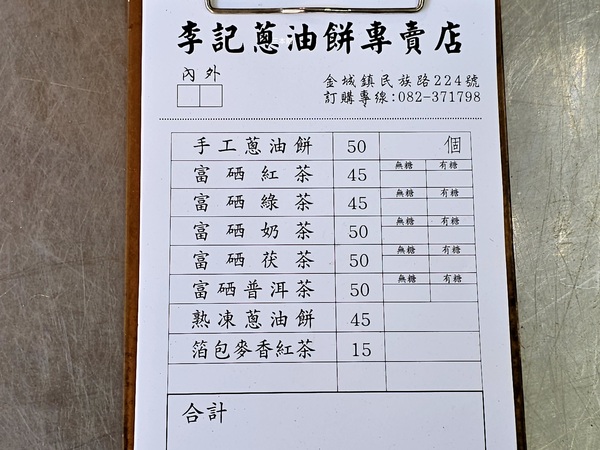 李記蔥油餅專賣店
內 外
金城鎮民族路224號
訂購專線:082-371798
手工蔥油餅 50 個
富硒紅茶 45 無糖 有糖
富硒綠茶 45 無糖 有糖
富硒奶茶 50 無糖 有糖
富硒茯茶 50 無糖 有糖
富硒普洱茶 50 無糖 有糖
熟凍蔥油餅 45
箔包麥香紅茶 15
合計